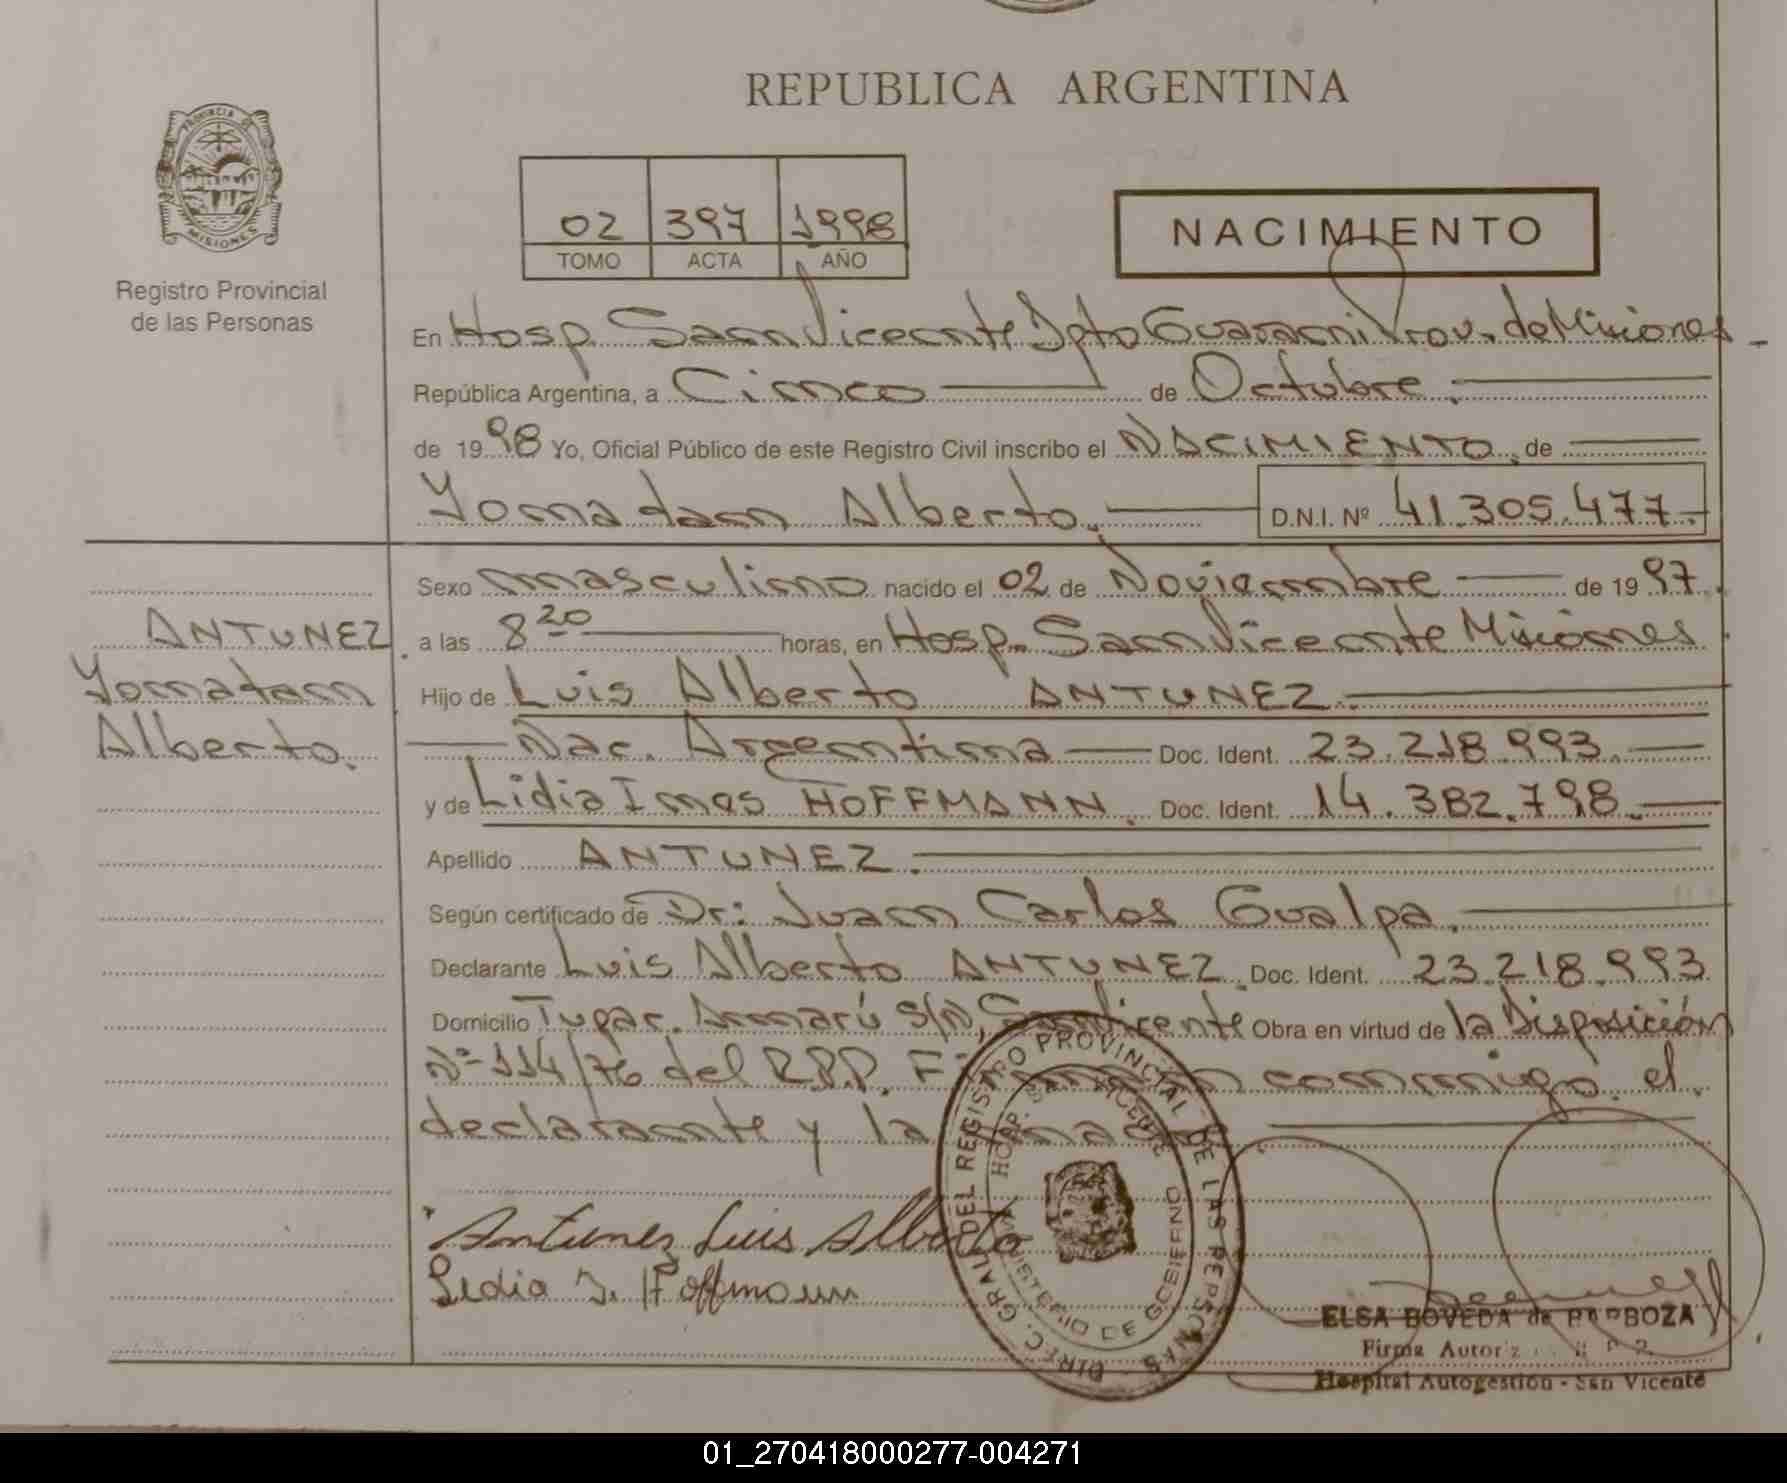 REPUBLICA ARGENTINA
PROVINCIA DE
MISIONES
Registro Provincial
de las Personas
02 397 1998
TOMO ACTA AÑO
NACIMIENTO
En Hosp. San Vicente Dpto Guarani Prov. de Misiones
República Argentina, a Cinco de Octubre.
de 1998 Yo, Oficial Público de este Registro Civil inscribo el NACIMIENTO, de
Yonatan Alberto. D.N.I. Nº 41.305.477.
Sexo masculino nacido el 02 de Noviembre de 1997.
ANTUNEZ
a las 8 20 horas, en Hosp. San Vicente Misiones
Yonatan
Hijo de Luis Alberto ANTUNEZ.
Alberto.
Nac. Argentina Doc. Ident. 23.218.993.
y de Lidia Ines HOFFMANN. Doc. Ident. 14.382.798.
Apellido ANTUNEZ.
Según certificado de Dr: Juan Carlos Gualpa.
Declarante Luis Alberto ANTUNEZ. Doc. Ident. 23.218.993
Domicilio Tupac. Amarú S/N, San Vicente Obra en virtud de la Disposición
Nº 114/76 del R.P.P. Firman conmigo el
declarante y la
Antunez Luis Alberto
Lidia I. Hoffmann
DIREC. GRAL. DEL REGISTRO PROVINCIAL DE LAS PERSONAS
HOSP. SAN VICENTE
MINISTERIO DE GOBIERNO
ELSA BOVEDA de BARBOZA
Firma
Hospital Autogestión - San Vicente
01_270418000277-004271